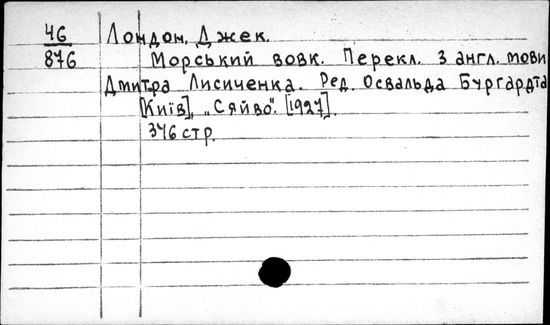 46
876
Лондон, Джек.
Морський вовк. Перекл. з англ. мови
Дмитра Лисиченка. Ред. Освальда Бургардта
[Київ], „Сяйво“. [1927].
376 стр.